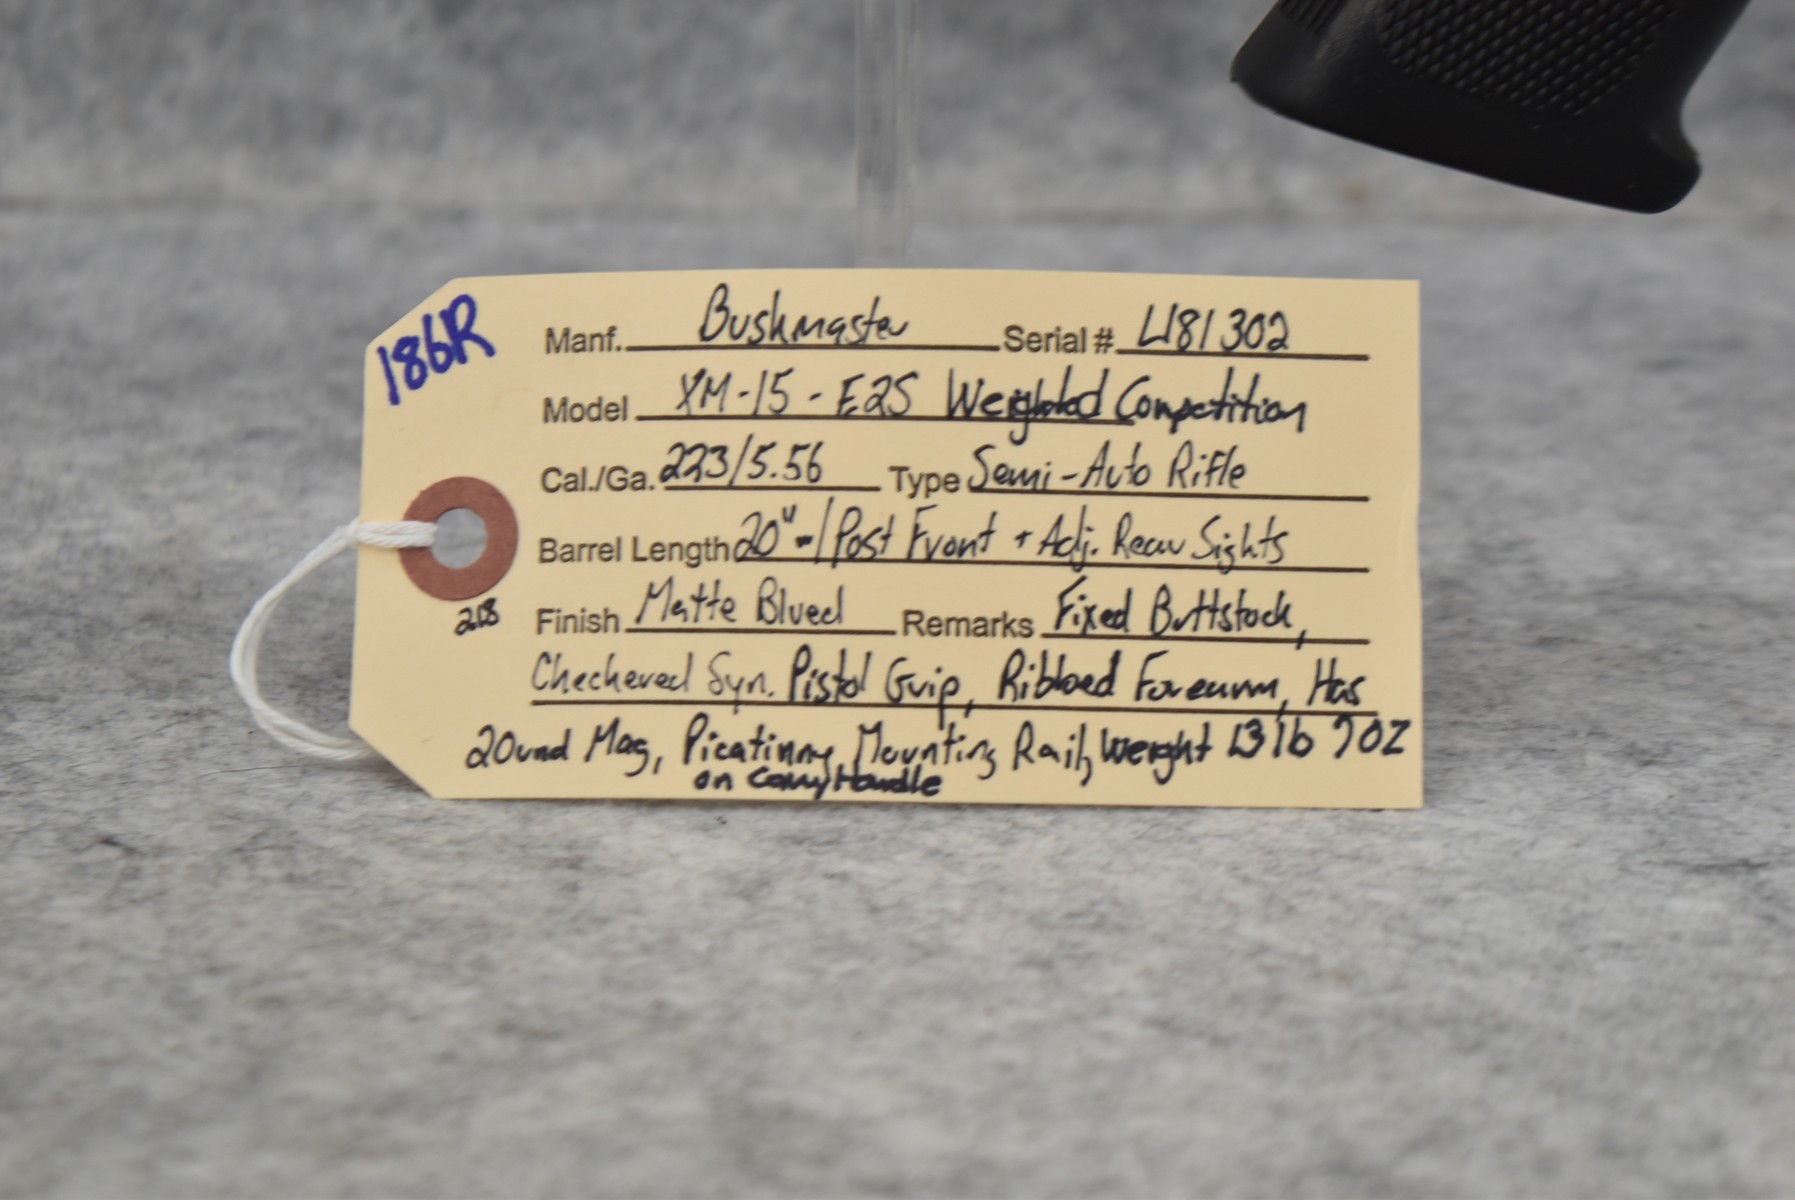 186R
Manf. Bushmaster Serial # L181302
Model XM-15-E2S Weighted Competition
Cal./Ga. 223/5.56 Type Semi-Auto Rifle
Barrel Length 20" - / Post Front + Adj. Rear Sights
218
Finish Matte Blued Remarks Fixed Buttstock,
Checkered Syn. Pistol Grip, Ribbed Forearm, Has
20und Mag, Picatinny Mounting Rail, Weight 13 lb 7oz
on Carry Handle